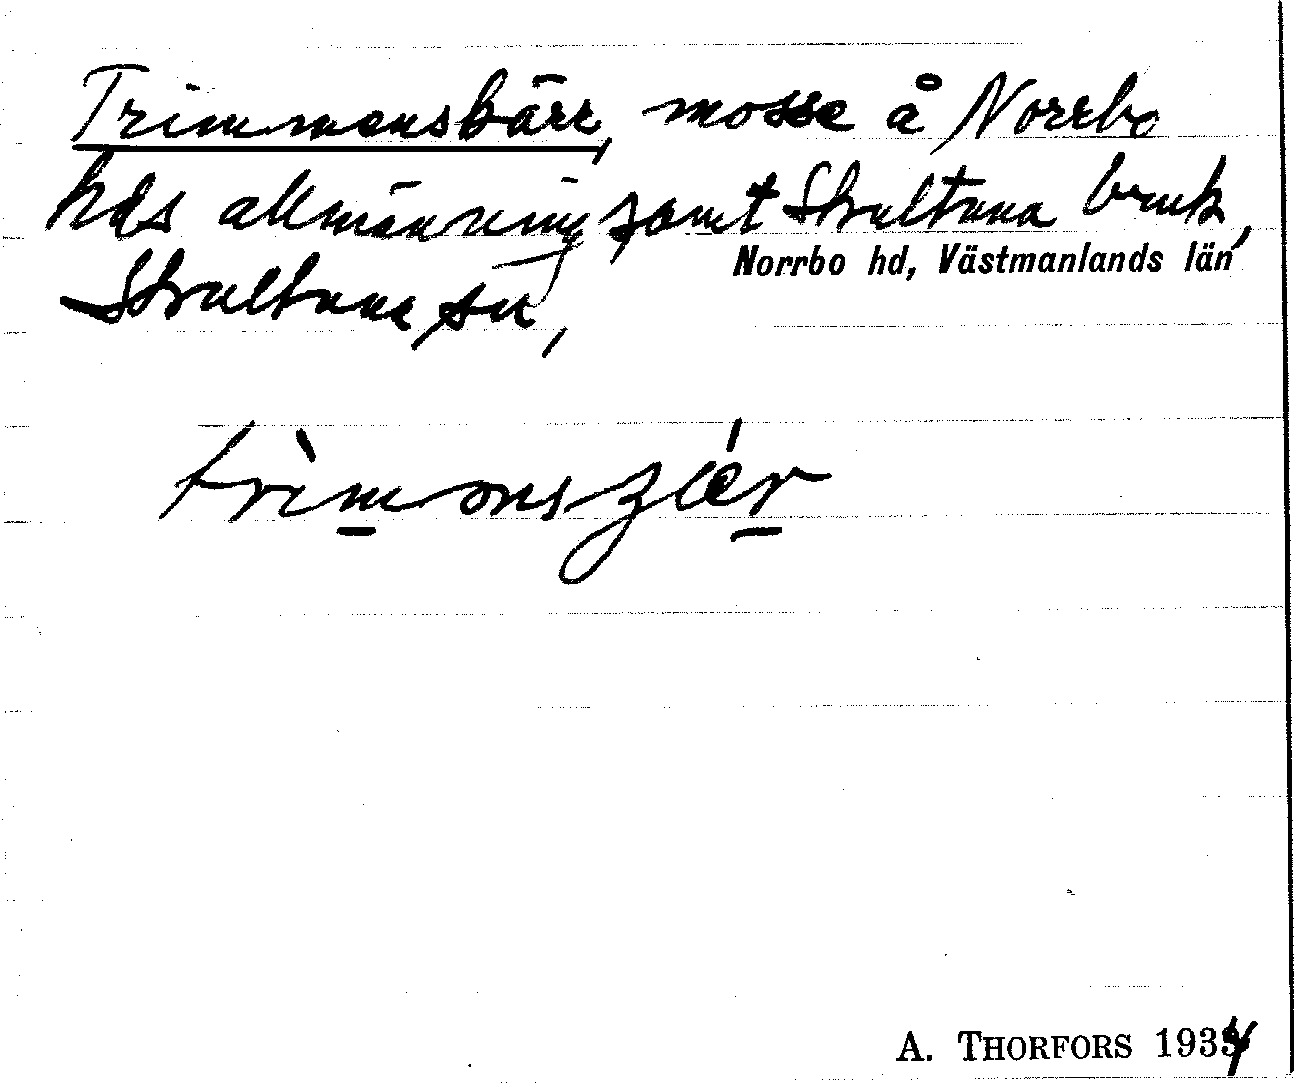 Trimmonskärr, mosse å Norrbo
hds allmänning samt Skultuna bruk,
Norrbo hd, Västmanlands län
Skultuna sn,
A. THORFORS 1934